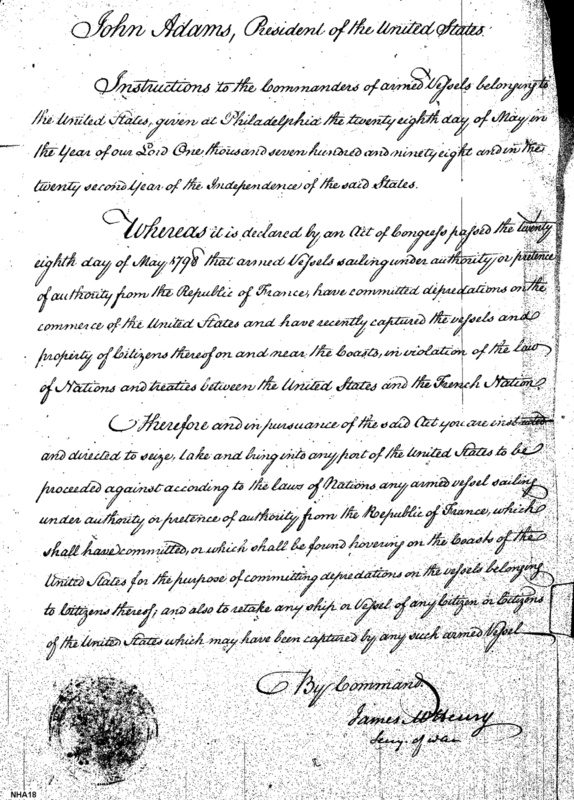 John Adams, President of the United States.
Instructions to the Commanders of armed Vessels belonging to
the United States, given at Philadelphia the twenty eighth day of May in
the Year of our Lord One thousand seven hundred and ninety eight and in the
twenty second Year of the Independence of the said States.
Whereas it is declared by an Act of Congress passed the twenty
eighth day of May 1798 that armed Vessels sailing under authority or pretence
of authority from the Republic of France, have committed depredations on the
commerce of the United States and have recently captured the vessels and
property of Citizens thereof on and near the Coasts, in violation of the law
of Nations and treaties between the United States and the French Nation
Therefore and in pursuance of the said Act you are instructed
and directed to seize, take and bring into any port of the United States to be
proceeded against according to the laws of Nations any armed vessel sailing
under authority or pretence of authority from the Republic of France, which
shall have committed, or which shall be found hovering on the Coasts of the
United States for the purpose of committing depredations on the vessels belonging
to Citizens thereof; and also to retake any ship or Vessel of any Citizen or Citizens
of the United States which may have been captured by any such armed Vessel
By Command
James McHenry
Secry. of war
NHA18